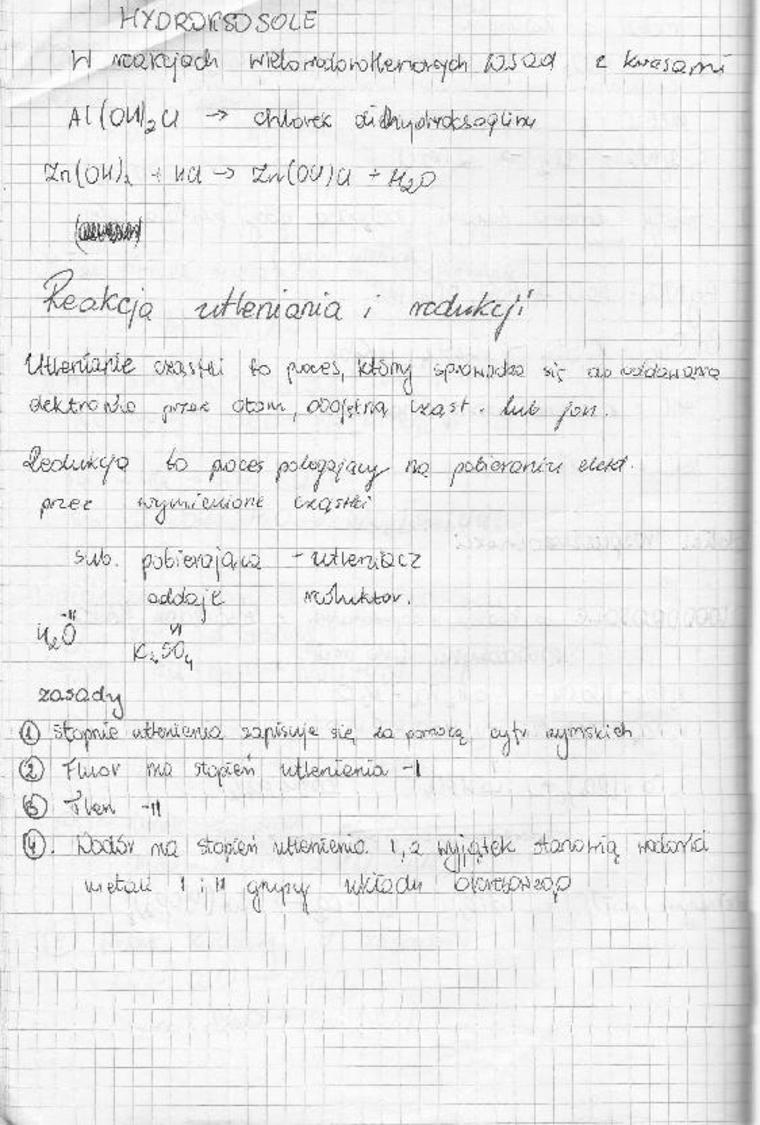 HYDROKSOSOLE
W reakcjach wielowodorotlenowych zasad z kwasami
Al(OH)₂Cl → chlorek dihydroksoglinu
Zn(OH)₂ + HCl → Zn(OH)Cl + H₂O
Reakcja utleniania i redukcji
Utlenianie cząstki to proces, który sprowadza się do oddawania
elektronów przez atom, obojętną cząst. lub jon.
Redukcja to proces polegający na pobieraniu elekt.
przez wymienione cząstki
sub. pobierająca - utleniacz
oddaje reduktor.
-II VI
H₂O K₂SO₄
zasady
① Stopnie utlenienia zapisuje się za pomocą cyfr rzymskich
② Fluor ma stopień utlenienia -I
③ Tlen -II
④. Wodór ma stopień utlenienia I, a wyjątek stanowią wodorki
metali I i II grupy układu okresowego